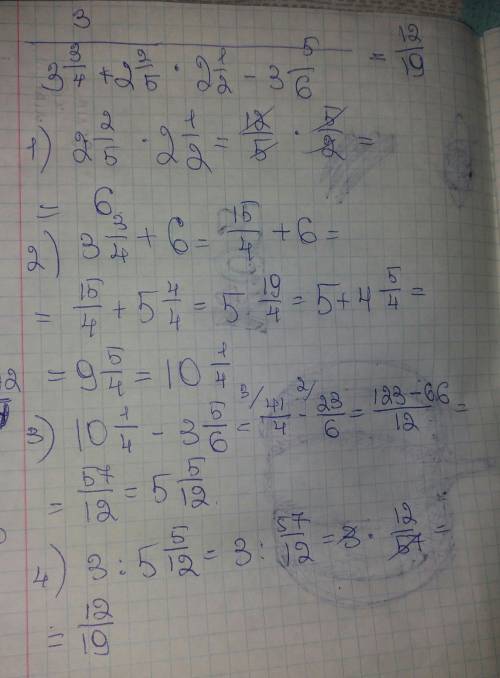 3
3 3/4 + 2 2/5 · 2 1/2 - 3 5/6 = 12/19
1) 2 2/5 · 2 1/2 = 12/5 · 5/2 =
= 6
2) 3 3/4 + 6 = 15/4 + 6 =
= 15/4 + 5 4/4 = 5 19/4 = 5 + 4 5/4 =
12
= 9 5/4 = 10 1/4
3) 10 1/4 - 3 5/6 = 3/ 41/4 - 2/ 23/6 = 123-66/12 =
= 57/12 = 5 5/12
4) 3 : 5 5/12 = 3 : 57/12 = 3 · 12/57 =
= 12/19